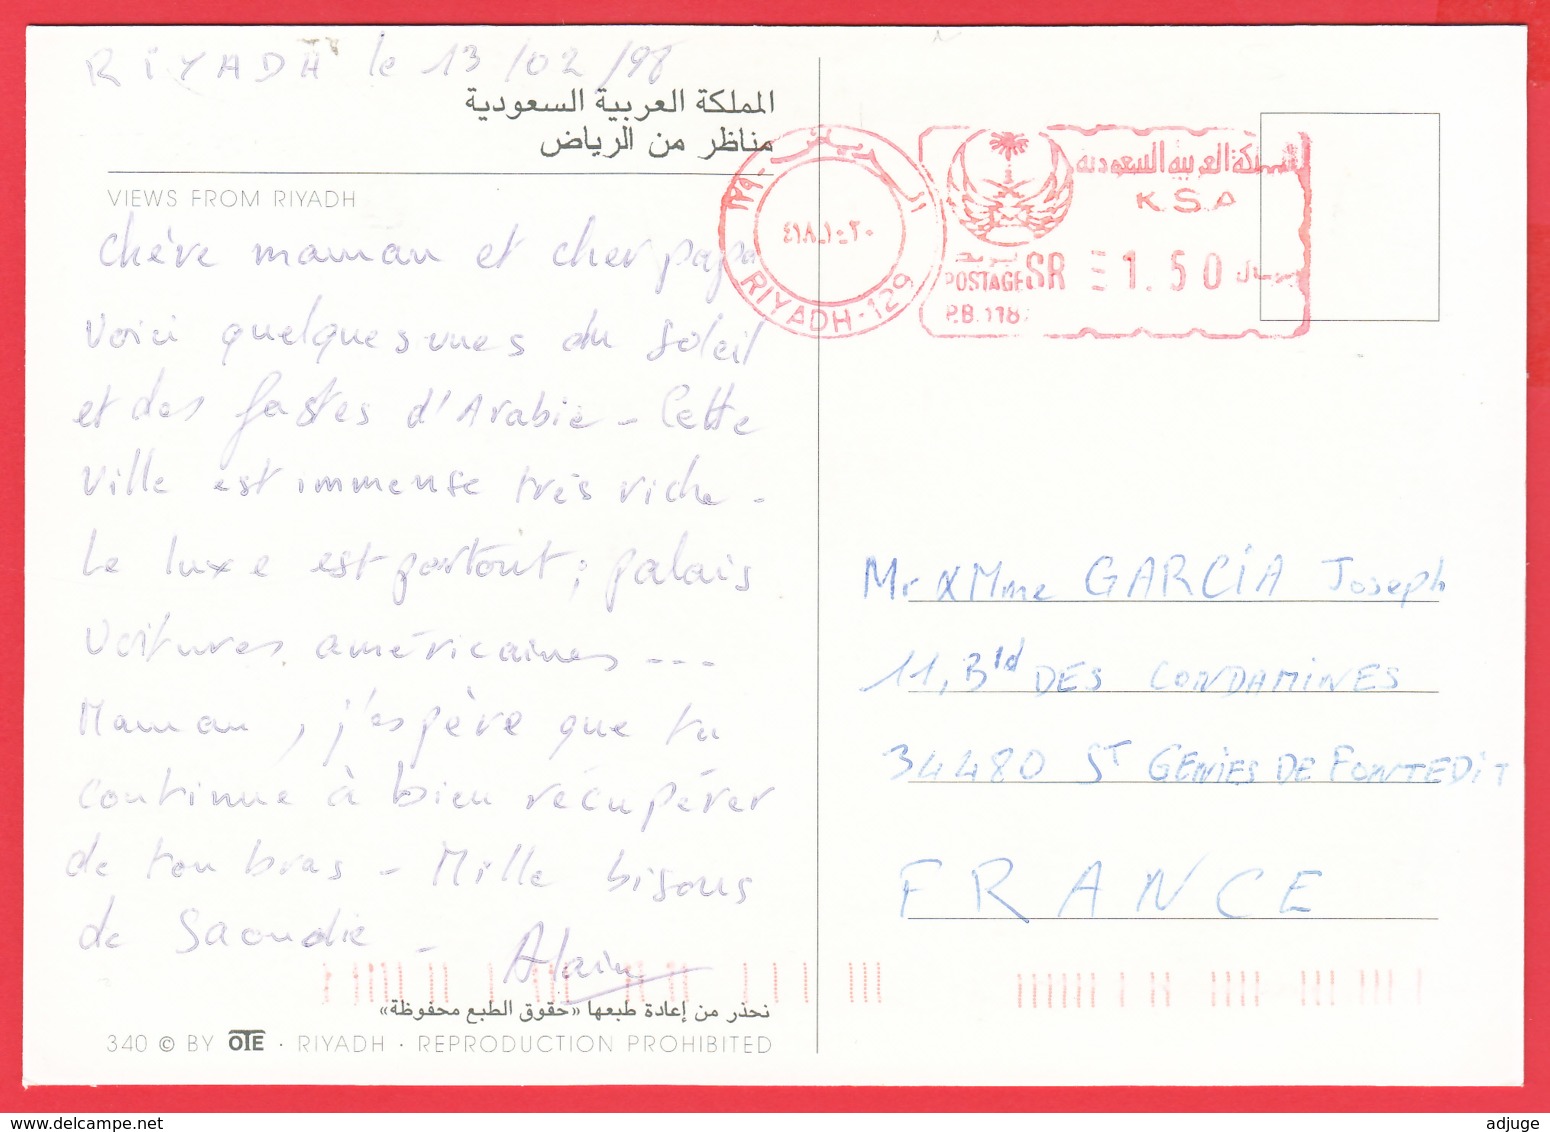 RIYADH le 13/02/98
المملكة العربية السعودية
مناظر من الرياض
VIEWS FROM RIYADH
Chère maman et cher papa
Voici quelques vues du soleil
et des fastes d'Arabie - Cette
ville est immense très riche -
Le luxe est partout ; palais
voitures américaines ---
Maman, j'espère que tu
continue à bien récupérer
de ton bras - Mille bisous
de Saoudie - Alain
نحذر من إعادة طبعها «حقوق الطبع محفوظة»
340 © BY OTE · RIYADH · REPRODUCTION PROHIBITED
الرياض - ١٢٩
RIYADH - 129
المملكة العربية السعودية
K.S.A
POSTAGE SR 1.50 ريال
P.B. 118
Mr & Mme GARCÍA Joseph
11, Bld DES CONDAMINES
34480 ST GENIES DE FONTEDIT
FRANCE
www.delcampe.net
adjuge